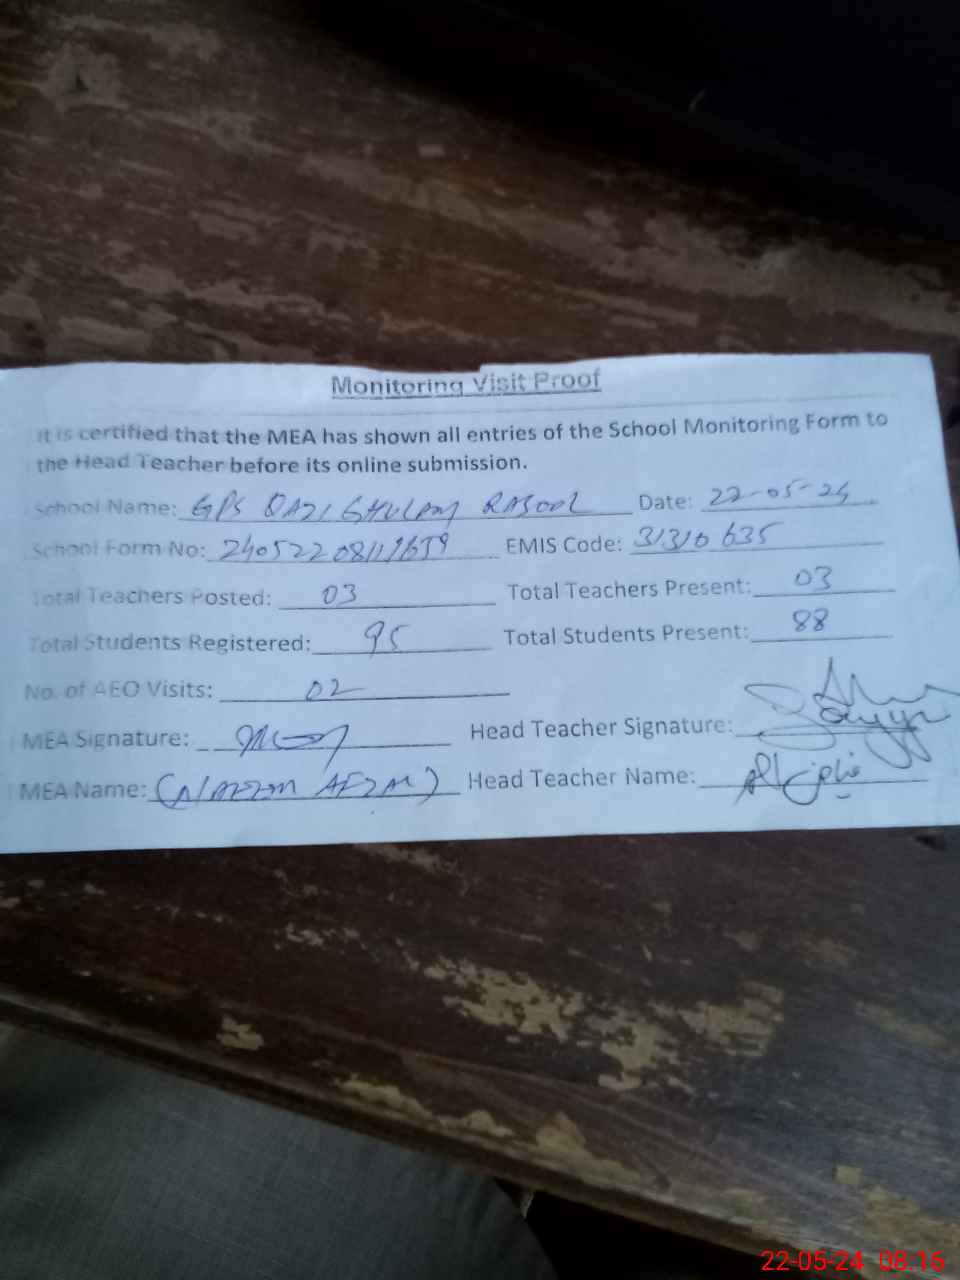 Monitoring Visit Proof
It is certified that the MEA has shown all entries of the School Monitoring Form to
the Head Teacher before its online submission.
School Name: GPS QAZI GHULAM RASOOL Date: 22-05-24
School Form No: EMIS Code: 31310635
Total Teachers Posted: 03 Total Teachers Present: 03
Total Students Registered: 95 Total Students Present: 88
No. of AEO Visits: 02
MEA Signature: Head Teacher Signature:
MEA Name: (NAZIM AFZAL) Head Teacher Name:
22-05-24 08:15